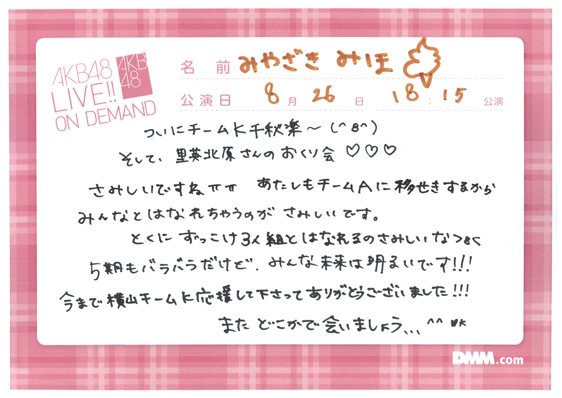 AKB48
LIVE!!
ON DEMAND
AKB
48
名 前 みやざき みほ
公演日 8月 26日 18:15 公演
ついにチームK千秋楽〜(^8^)
そして、里英北原さんのおくり会♡♡♡
さみしいですねππ あたしもチームAに移せきするから
みんなとはなれちゃうのが さみしいです。
とくに ずっこけ3人組とはなれるのさみしいな>8<
5期もバラバラだけど、みんな未来は明るいです!!!
今まで横山チームK応援して下さってありがとうございました!!!
また どこかで会いましょう... ^^
DMM.com